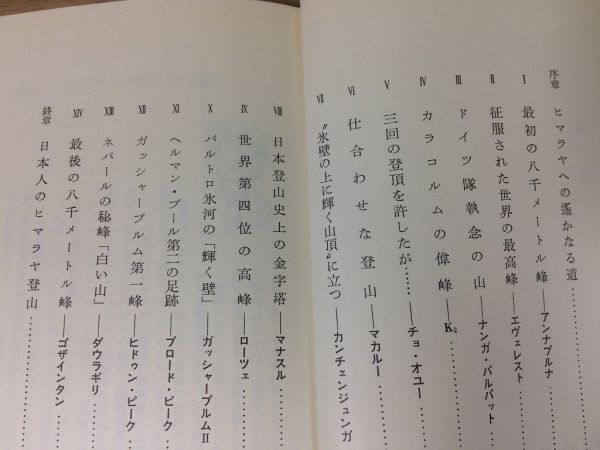 序章 ヒマラヤへの遙かなる道………
Ⅰ 最初の八千メートル峰――アンナプルナ
Ⅱ 征服された世界の最高峰――エヴェレスト…
Ⅲ ドイツ隊執念の山――ナンガ・パルバット…
Ⅳ カラコルムの偉峰――K2………
Ⅴ 三回の登頂を許したが……――チョ・オユー…
Ⅵ 仕合わせな登山――マカルー………
Ⅶ “氷壁の上に輝く山頂”に立つ――カンチェンジュンガ
Ⅷ 日本登山史上の金字塔――マナスル………
Ⅸ 世界第四位の高峰――ローツェ………
Ⅹ バルトロ氷河の「輝く壁」――ガッシャーブルムⅡ
Ⅺ ヘルマン・ブール第二の足跡――ブロード・ピーク…
Ⅻ ガッシャーブルム第一峰――ヒドゥン・ピーク…
XIII ネパールの秘峰「白い山」――ダウラギリ…
XIV 最後の八千メートル峰――ゴザインタン…
終章 日本人のヒマラヤ登山………